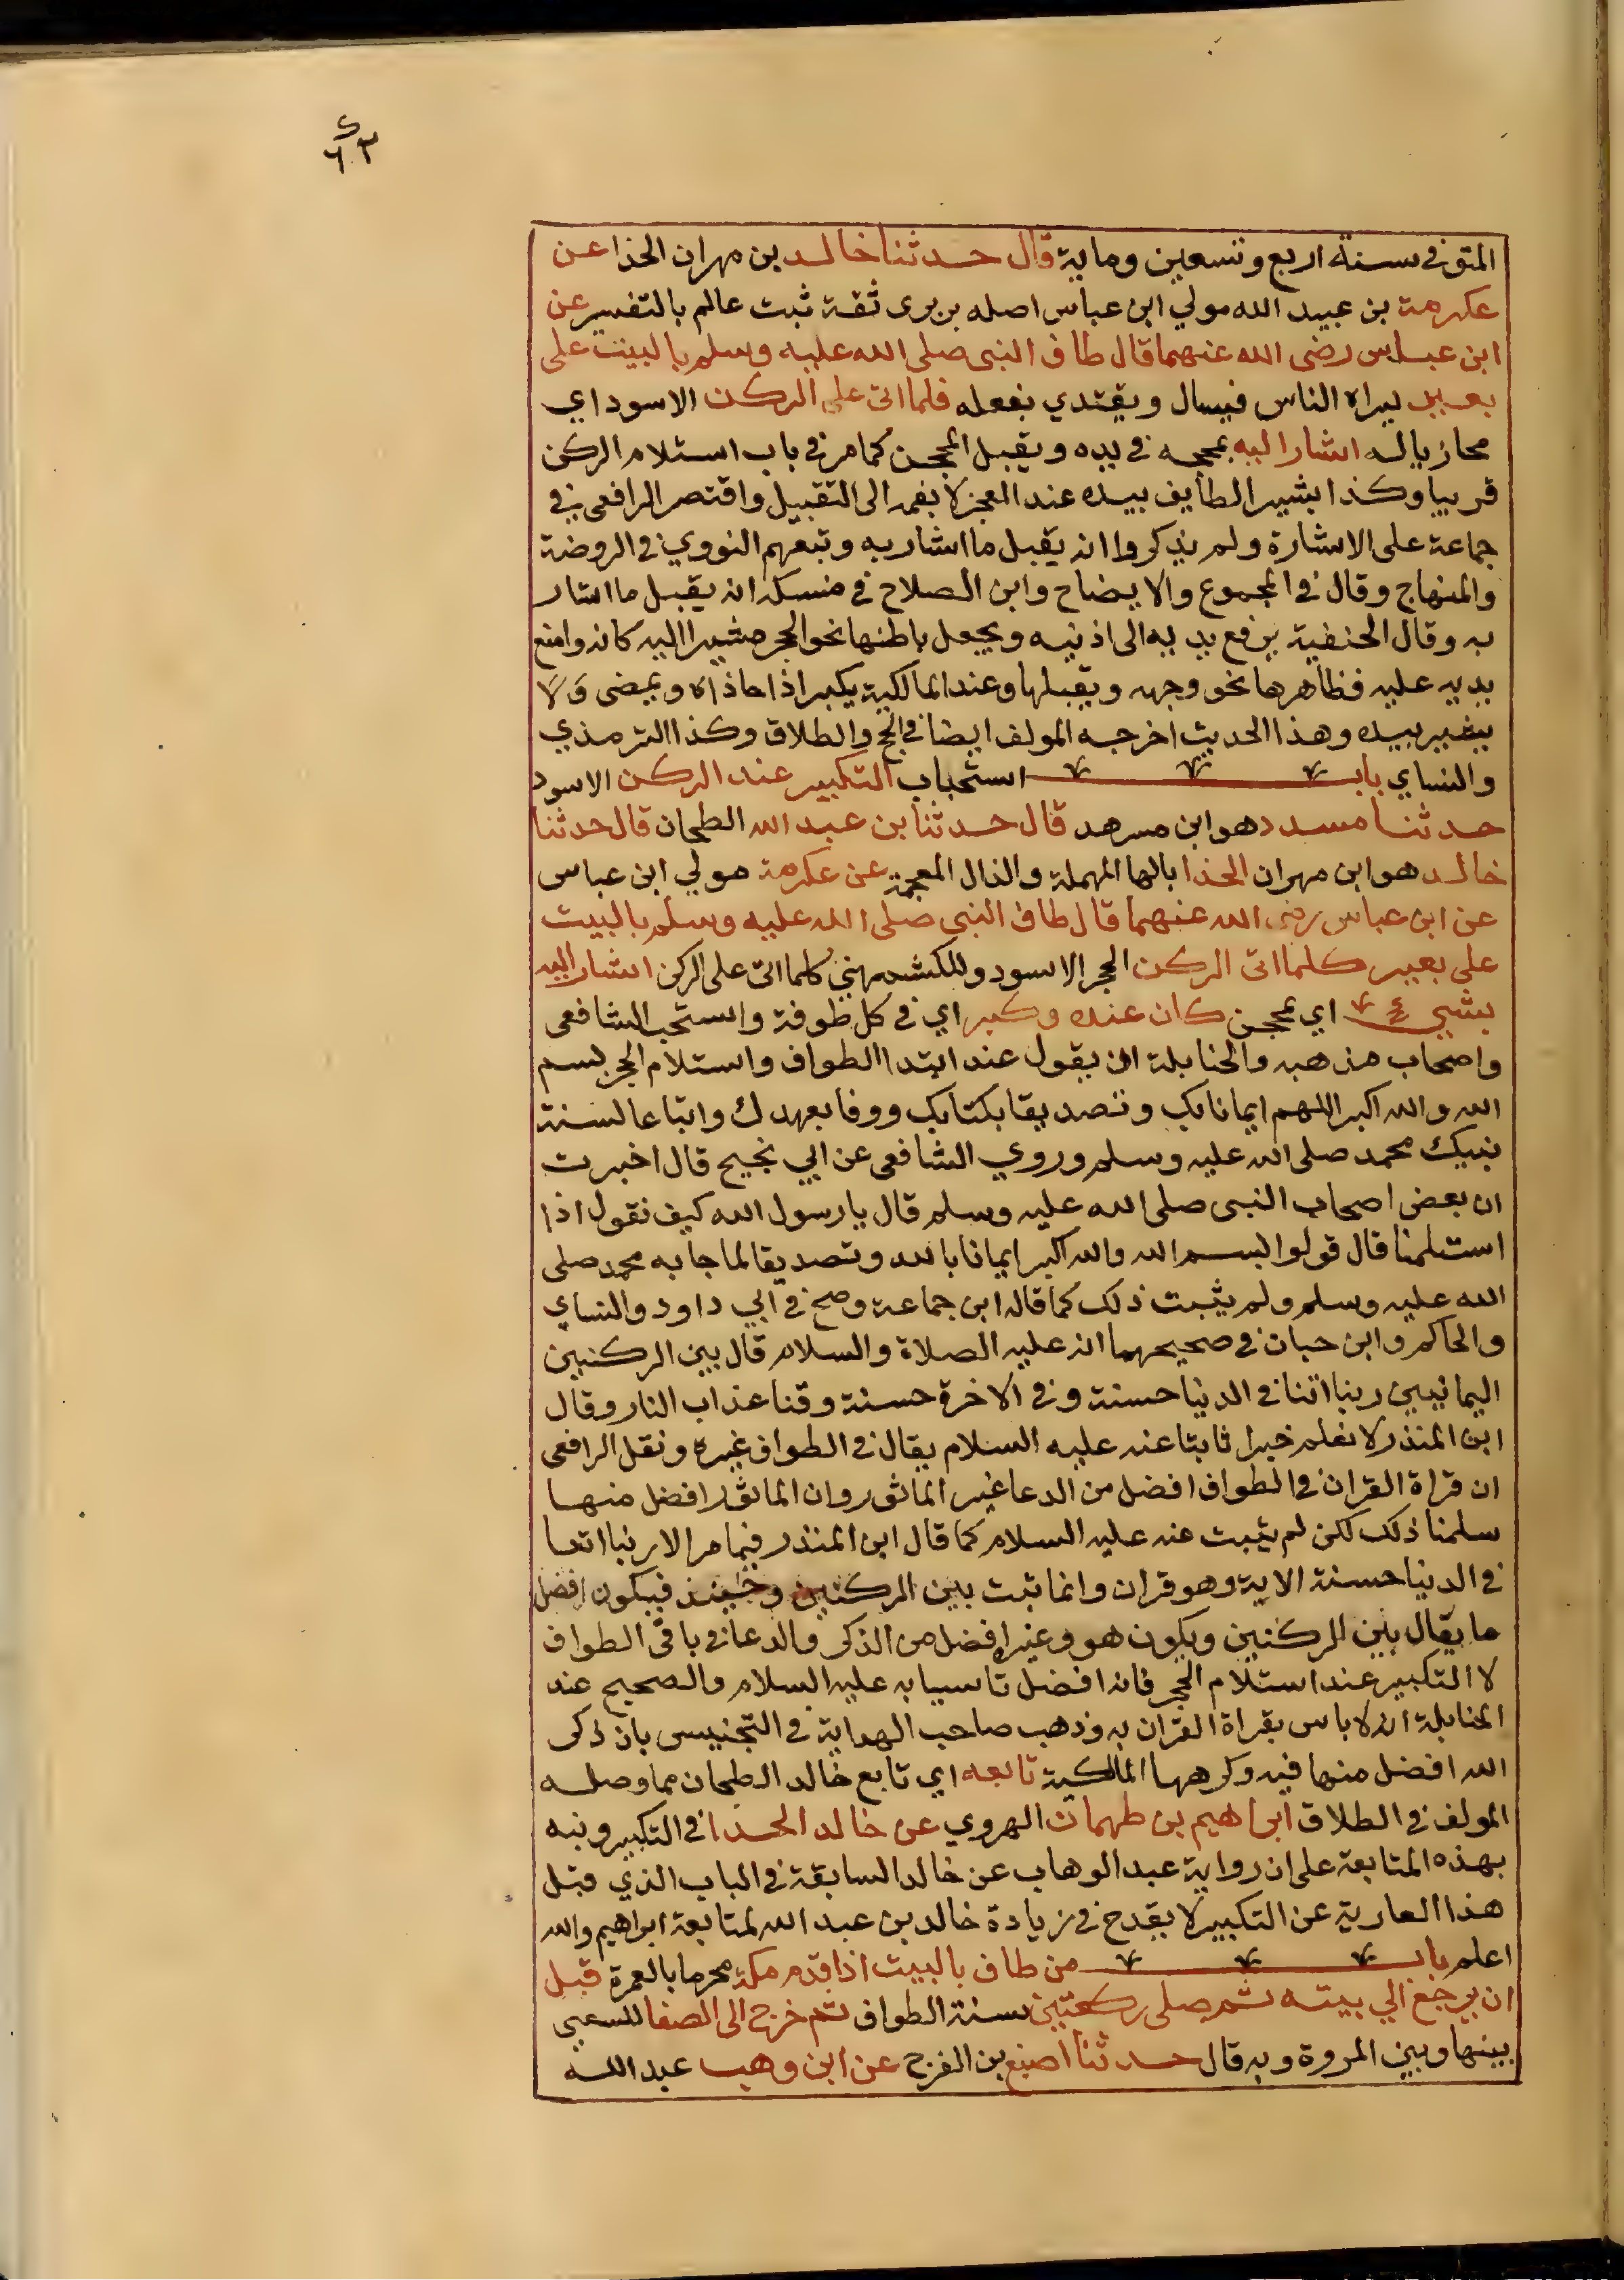 ٢
٦٣
المتوفي سنة اربع وتسعين وماية قال حدثنا خالد بن مهران الحذا عن
عكرمة بن عبيد الله مولي ابن عباس اصله بربري ثقة ثبت عالم بالتفسير عن
ابن عباس رضى الله عنهما قال طاف النبى صلى الله عليه وسلم بالبيت على
بعير ليراه الناس فيسال ويقتدي بفعله فلما اتى على الركن الاسود اي
محاذيا له اشار اليه بمحجه في يده ويقبل المحجن كما مر في باب استلام الركن
قريبا وكذا يشير الطايف بيده عند العجز لا بفمه الى التقبيل واقتصر الرافعى في
جماعة على الاشارة ولم يذكروا انه يقبل ما اشار به وتبعهم النووي في الروضة
والمنهاج وقال في المجموع والايضاح وابن الصلاح في منسكه انه يقبل ما اشار
به وقال الحنفية يرفع يديه الى اذنيه ويجعل باطنها نحو الحجر مشيرا اليه كانه واضع
يديه عليه فظاهرها نحو وجهه ويقبلها وعند المالكية يكبر اذا حاذاه ويمضى ولا
يشير بيده وهذا الحديث اخرجه المولف ايضا في الحج والطلاق وكذا الترمذي
والنساي باب استحباب التكبير عند الركن الاسود
حدثنا مسدد هو ابن مسرهد قال حدثنا بن عبد الله الطحان قال حدثنا
خالد هو ابن مهران الحذا بالها المهملة والذال المعجمة عن عكرمة مولي ابن عباس
عن ابن عباس رضى الله عنهما قال طاف النبى صلى الله عليه وسلم بالبيت
على بعير كلما اتى الركن الحجر الاسود وللكشمهيني كلما اتى على الركن اشار اليه
بشيي اي بمحجن كان عنده وكبر اي في كل طوفة واستحب الشافعى
واصحاب مذهبه والحنابلة ان يقول عند ابتدا الطواف واستلام الحجر بسم
الله والله اكبر اللهم ايمانا بك وتصديقا بكتابك ووفا بعهدك واتباعا لسنة
نبيك محمد صلى الله عليه وسلم وروي الشافعى عن ابي نجيح قال اخبرت
ان بعض اصحاب النبى صلى الله عليه وسلم قال يا رسول الله كيف نقول اذا
استلمنا قال قولوا بسم الله والله اكبر ايمانا بالله وتصديقا لما جا به محمد صلى
الله عليه وسلم ولم يثبت ذلك كما قاله ابن جماعة وصح في ابي داود والنساي
والحاكم وابن حبان في صحيحهما انه عليه الصلاة والسلام قال بين الركنين
اليمانيين ربنا اتنا في الدنيا حسنة وفي الاخرة حسنة وقنا عذاب النار وقال
ابن المنذر لا نعلم خبرا ثابتا عنه عليه السلام يقال في الطواف غيره ونقل الرافعى
ان قراة القران في الطواف افضل من الدعا غير الماثور وان الماثور افضل منها
سلمنا ذلك لكن لم يثبت عنه عليه السلام كما قال ابن المنذر فيما مر الا ربنا اتنا
في الدنيا حسنة الاية وهو قران وانما ثبت بين الركنين وحينئذ فيكون افضل
ما يقال بين الركنين ويكون هو وغيره افضل من الذكر والدعا في باقى الطواف
لا التكبير عند استلام الحجر فانه افضل تاسيا به عليه السلام والصحيح عند
الحنابلة انه لا باس بقراة القران به وذهب صاحب الهداية في التجنيس بان ذكر
الله افضل منها فيه وكرهها المالكية تابعه اي تابع خالد الطحان مما وصله
المولف في الطلاق ابراهيم بن طهمان الهروي عن خالد الحدا في التكبير ونبه
بهذه المتابعة على ان رواية عبد الوهاب عن خالد السابقة في الباب الذي قبل
هذا العارية عن التكبير لا يقدح في زيادة خالد بن عبد الله لمتابعة ابراهيم والله
اعلم باب من طاف بالبيت اذا قدم مكة محرما بالعمرة قبل
ان يرجع الي بيته ثم صلى ركعتين سنة الطواف ثم خرج الى الصفا للسعي
بينها وبين المروة وبه قال حدثنا اصبغ بن الفرج عن ابن وهب عبد الله